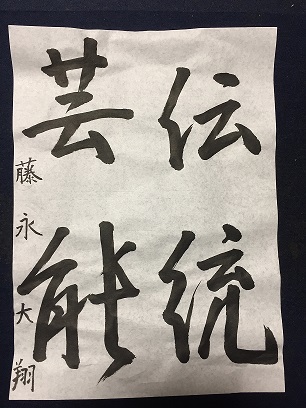 伝統
芸能
藤永大翔